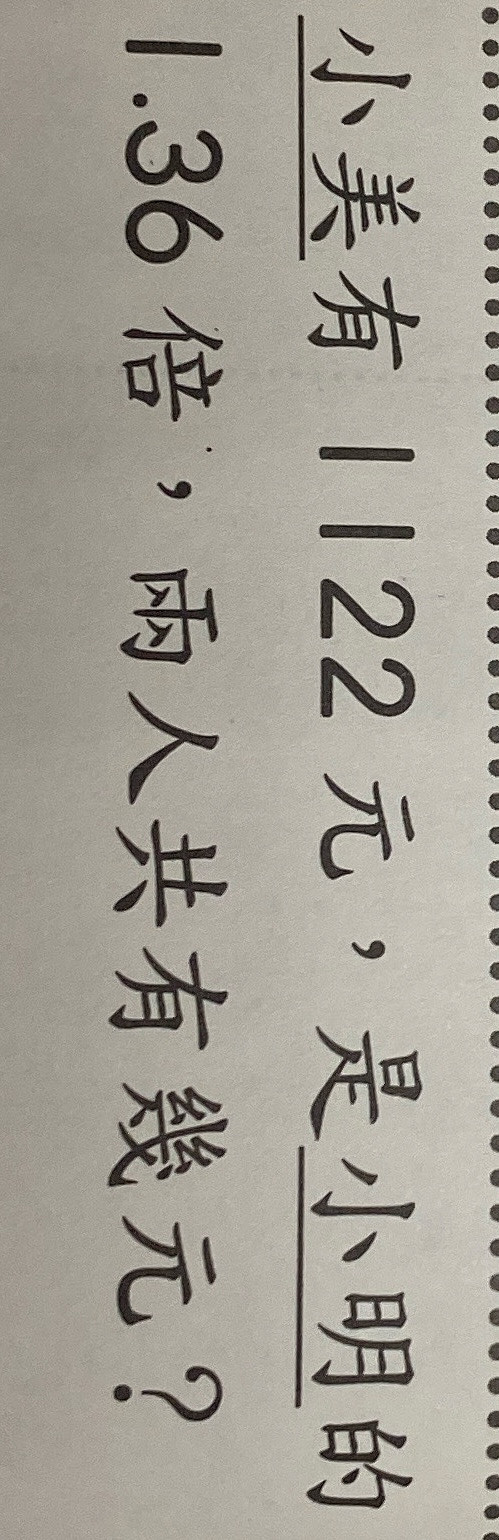 小美有 1122 元，是小明的
1.36 倍，兩人共有幾元？